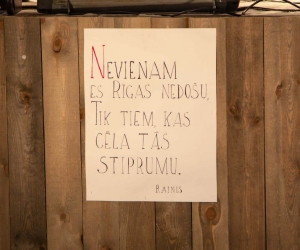 NEVIENAM
ES RĪGAS NEDOŠU,
TIK TIEM, KAS
CĒLA TĀS
STIPRUMU.
RAINIS